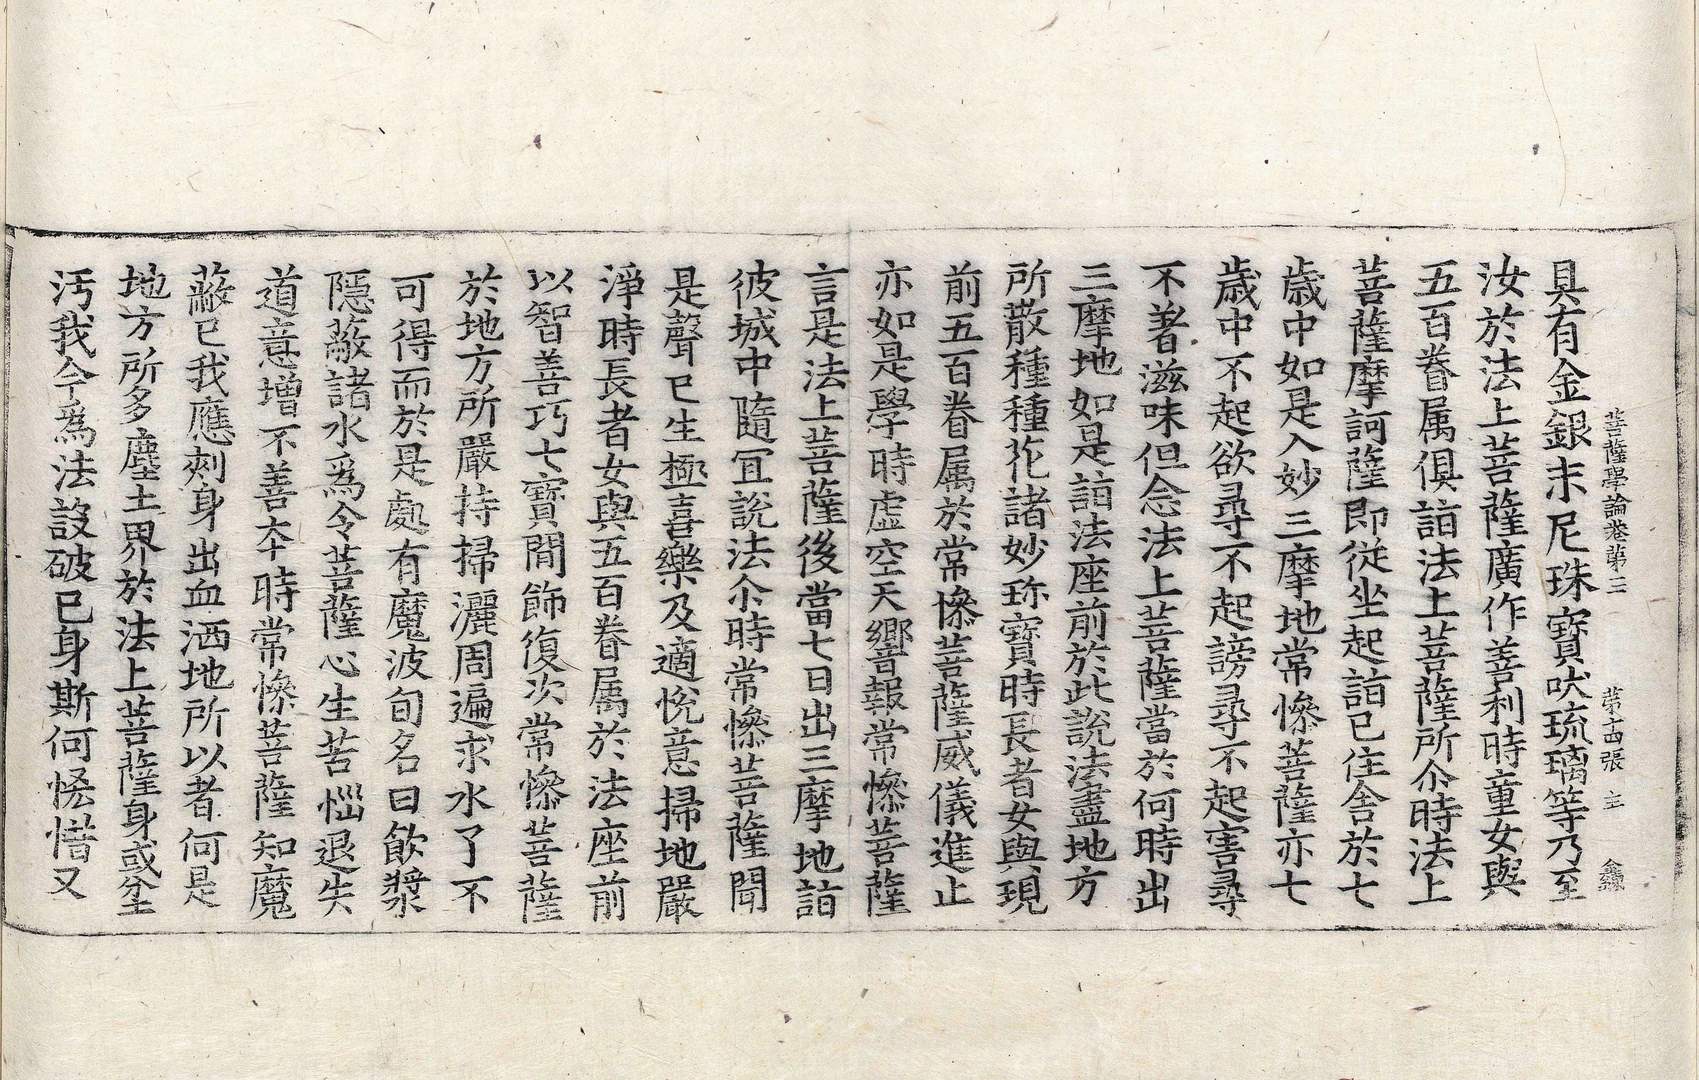 菩薩學論卷第三　第十四張　主
具有金銀末尼珠寶吠琉璃等乃至
汝於法上菩薩廣作善利時童女與
五百眷属俱詣法上菩薩所尒時法上
菩薩摩訶薩即從坐起詣已住舍於七
歳中如是入妙三摩地常慘菩薩亦七
歳中不起欲尋不起謗尋不起害尋
不著滋味但念法上菩薩當於何時出
三摩地如是詣法座前於此說法盡地方
所散種種花諸妙珎寶時長者女與現
前五百眷属於常慘菩薩威儀進止
亦如是學時虛空天響報常慘菩薩
言是法上菩薩後當七日出三摩地詣
彼城中隨冝說法尒時常慘菩薩聞
是聲已生極喜樂及適悅意掃地嚴
淨時長者女與五百眷属於法座前
以智善巧七寶間飾復次常慘菩薩
於地方所嚴持掃灑周遍求水了不
可得而於是處有魔波旬名曰飲漿
隱蔽諸水爲令菩薩心生苦惱退失
道意增不善夲時常慘菩薩知魔
蔽已我應刾身出血洒地所以者何是
地方所多塵土界於法上菩薩身或坌
汚我今爲法設破已身斯何恡惜又